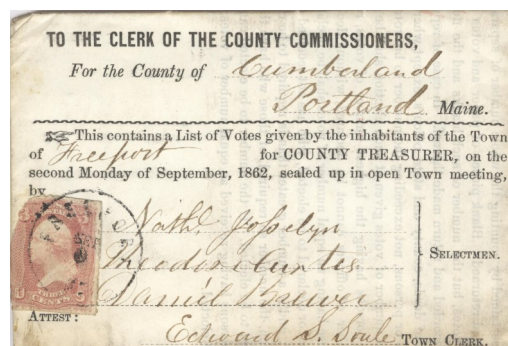 TO THE CLERK OF THE COUNTY COMMISSIONERS,
For the County of Cumberland
Portland Maine.
This contains a List of Votes given by the inhabitants of the Town
of Freeport for COUNTY TREASURER, on the
second Monday of September, 1862, sealed up in open Town meeting,
by
Nathl Josselyn
Theodore Curtis
Daniel Brewer
SELECTMEN.
ATTEST:
Edward S. Soule TOWN CLERK.